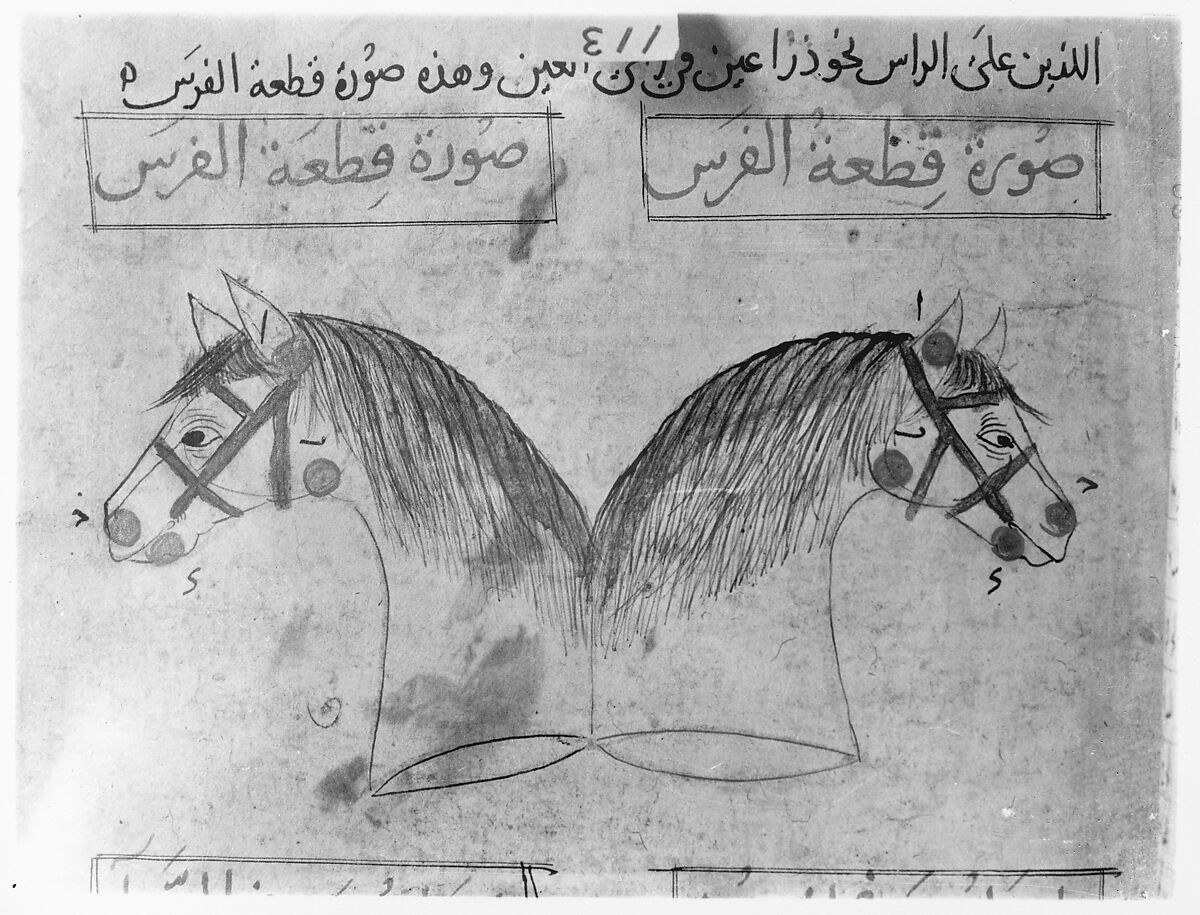 ٤١١
اللذين على الراس نحو ذراعين في العين وهذه صورة قطعة الفرس ه
صُورة قِطعةُ الفرَس
صُورة قِطعَة الفرسَ
ا
ا
ب
ب
د
د
ء
ء